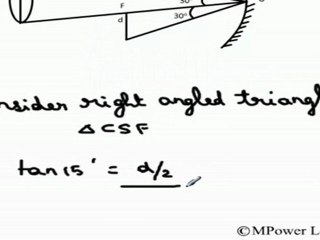 30°
F
d
30°
nsider right angled triangl
△ CSF
tan 15' = d/2
©MPower L